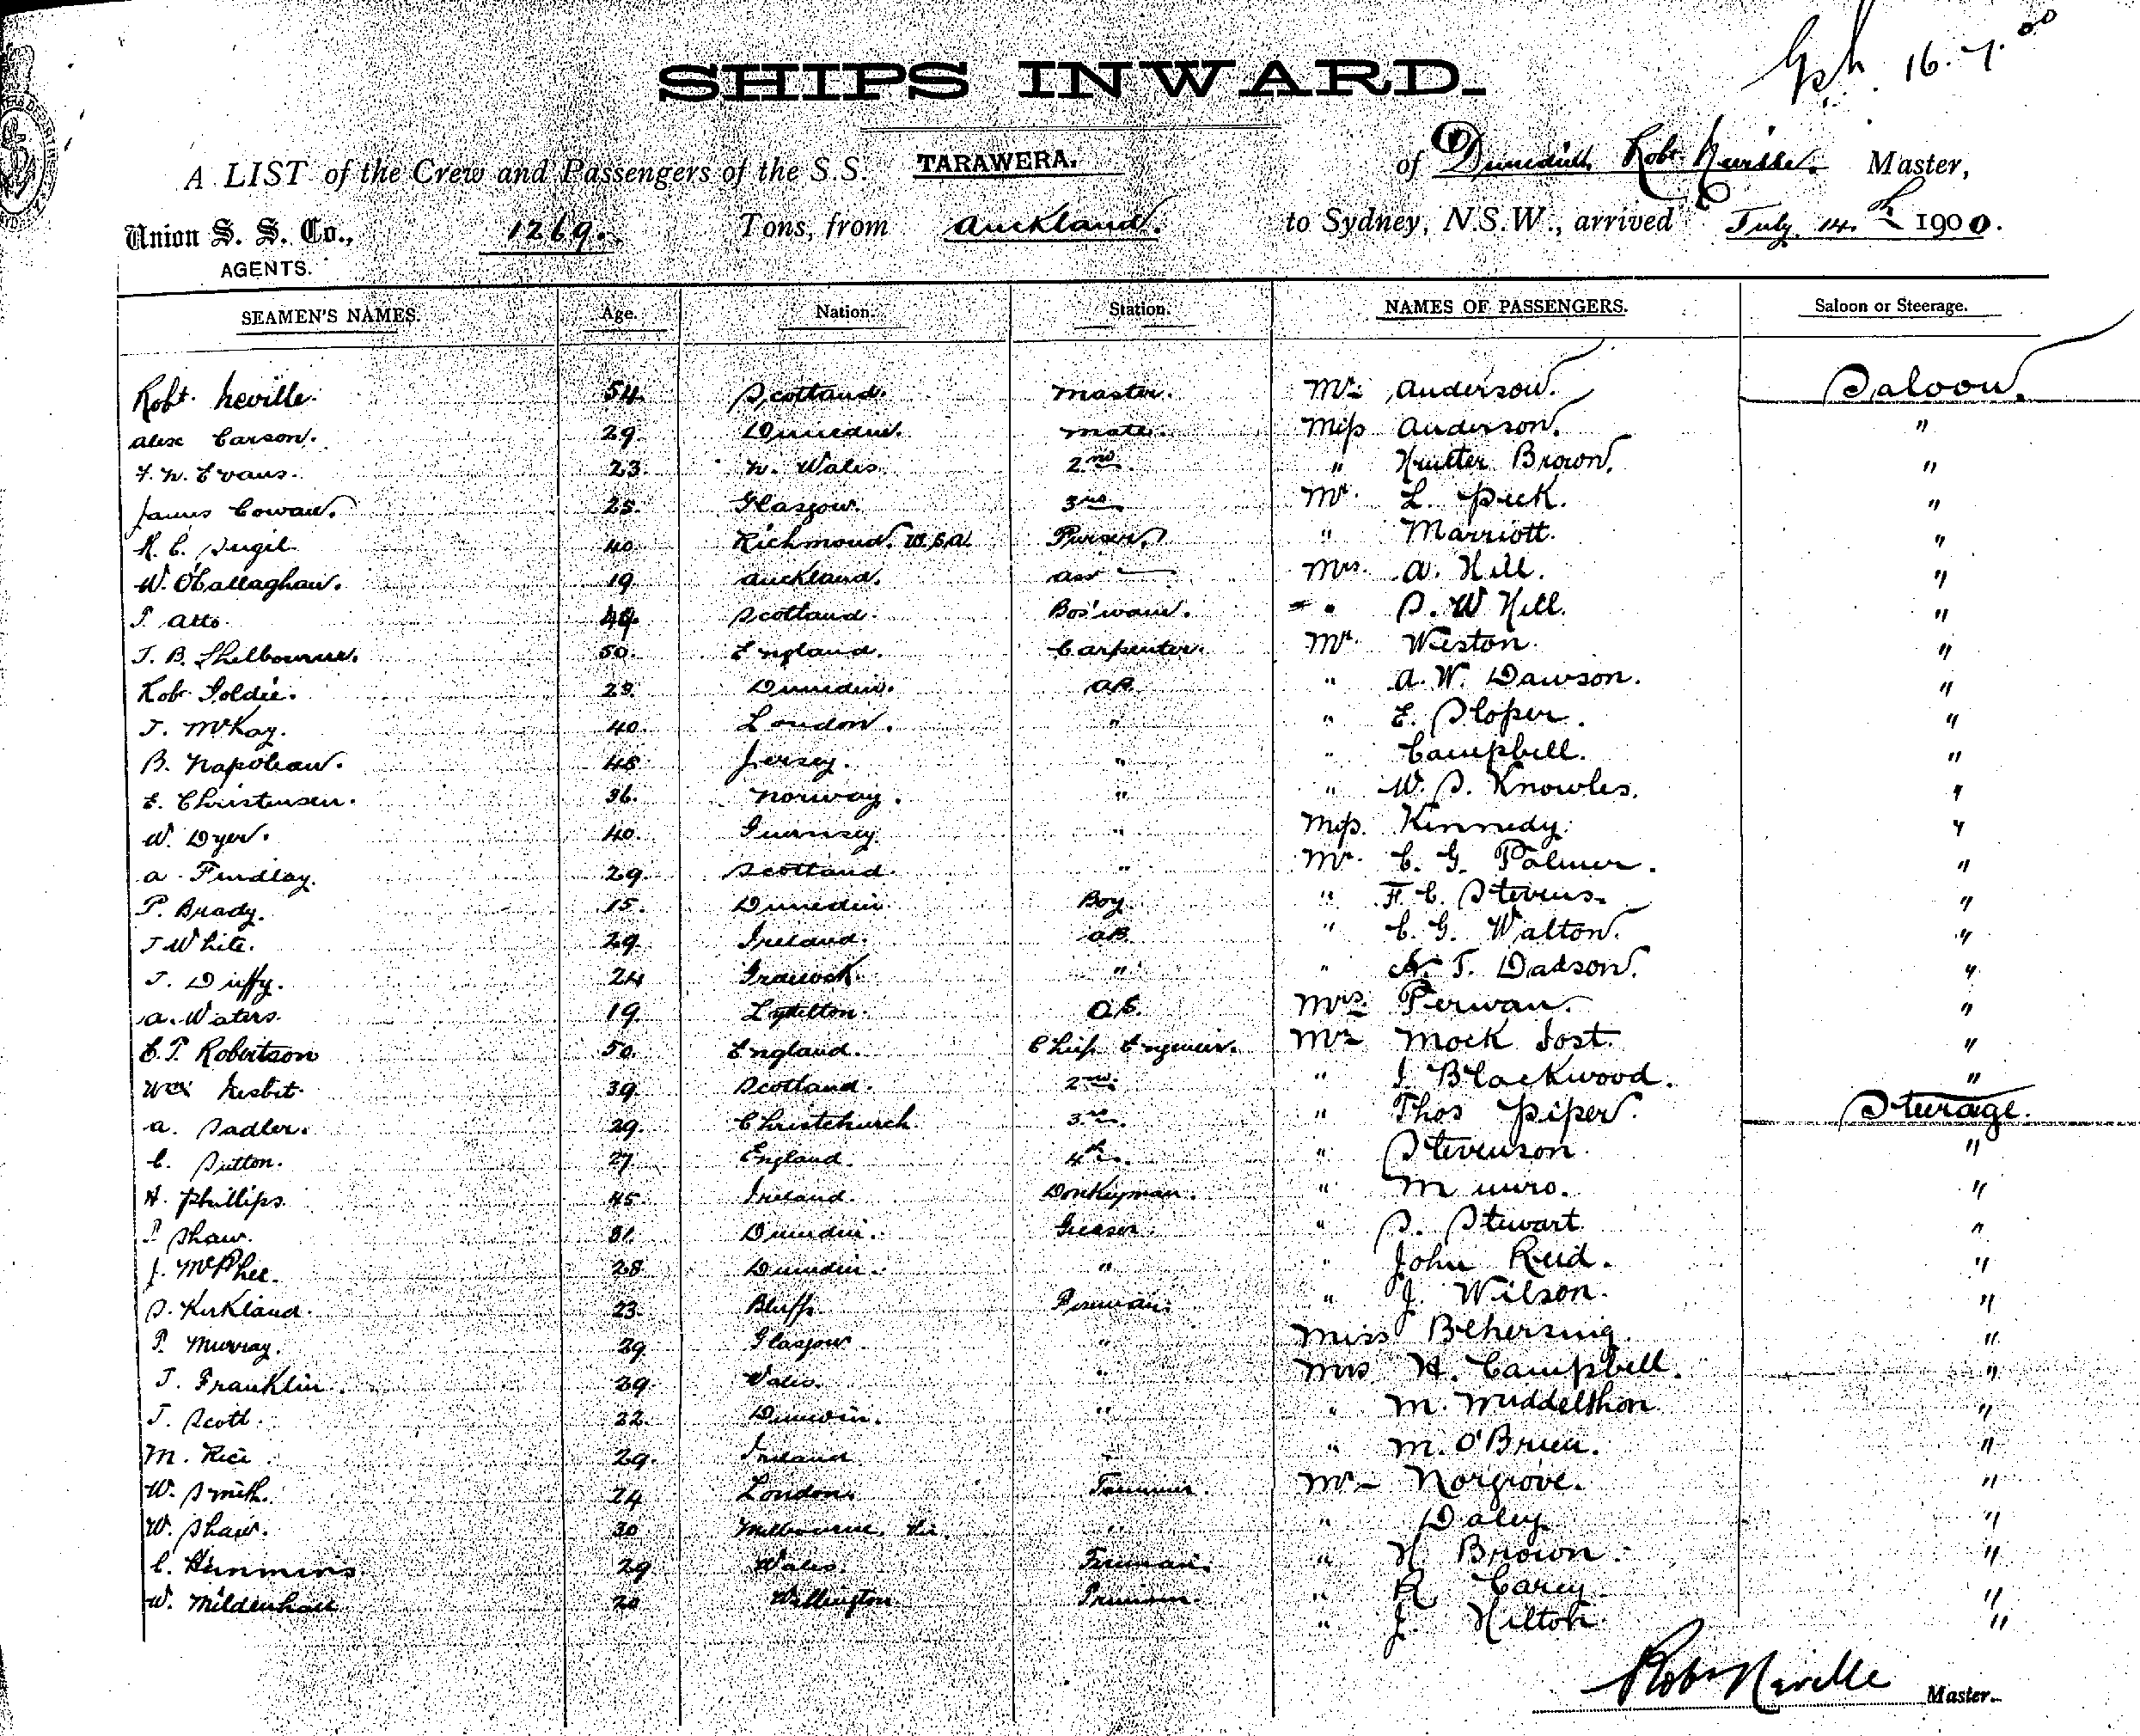 16.7.00
SHIPS INWARD.
A LIST of the Crew and Passengers of the S.S. TARAWERA. of Dunedin, Robt. Neville. Master,
Union S. S. Co., 1269. Tons, from Auckland. to Sydney, N.S.W., arrived July 14th 1900.
AGENTS.
SEAMEN'S NAMES. Age. Nation. Station. NAMES OF PASSENGERS. Saloon or Steerage.
Robt. Neville. 54. Scotland. Master. Mr Anderson. Saloon.
Alex Carson. 29. Dunedin. Mate. Miss Anderson. "
F. W. Evans. 23. N. Wales. 2nd " Hutter Brown. "
James Cowan. 25. Glasgow. 3rd Mr. L. Peek. "
H. C. 40. Richmond. U.S.A. Purser. " Marriott. "
W. O'Callaghan. 19. Auckland. Asst — Mrs. A. Hill. "
P. Atto. Scotland. Bos'wain. " S. W Hill. "
J. B. Shelbourne. 50. England. Carpenter. Mr. Weston. "
Rob Goldie. 29. Dunedin. AB. " A. W. Dawson. "
J. McKay. 40. London. " " E. Sloper. "
B. Napolean. 48. Jersey. " " Campbell. "
E. Christensen. 36. Norway. " " W. S. Knowles. "
W. Dyer. 40. Guernsey. " Miss. Kennedy. "
A. Findlay. 29. Scotland. " Mr. C. G. Palmer. "
P. Brady. 15. Dunedin. Boy " F. C. Stevens. "
J White. 29. Ireland. AB. " C. G. Walton. "
J. Duffy. 24 " " T. Dadson. "
A. Waters. 19. Lyttelton. O.S. Mrs. Perwan. "
C. P. Robertson 50. England. Chief Engineer. Mr Mock Jost. "
Wm Nesbit. 39. Scotland. 2nd " J. Blackwood. "
A. Sadler. 29. Christchurch. 3rd. " Thos Piper. Steerage.
C. Sutton. 27 England. 4th. " Stevenson. "
H. Phillips. 45. Ireland. Donkeyman. " Munro. "
P Shaw. 31. Dunedin. Greaser. " S. Stewart. "
J. McPhee. 28 Dunedin. " " John Reid. "
S. Kirkland. 23. Bluff. Fireman. " J. Wilson. "
P. Murray. 29 Glasgow " Miss Behersing. "
J. Franklin. 29. Wales. " Mrs H. Campbell. "
J. Scott. 22. Dunedin. " " M. Muddelthon. "
M. Rice. 29. Ireland " " M. O'Brien. "
W. Smith. 24 London. Trimmer. Mr Norgrove. "
W. Shaw. 30 Melbourne, Vic. " " Daley "
C. Hemmins 29 Wales. Fireman. " H. Brown. "
W. Mildenhall 20 Wellington. Trimmer. " R Carey "
" J. Hilton "
Robt Neville Master.